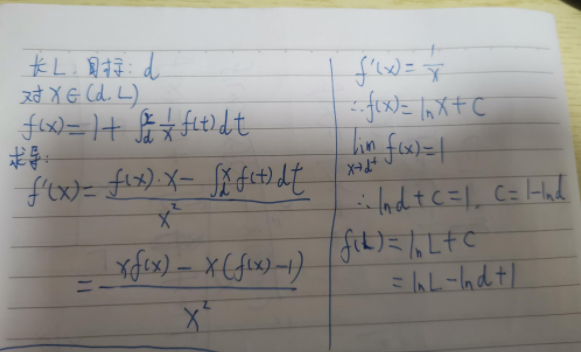 长L. 目标: d
对x∈(d.L)
f(x)=1+∫_d^x 1/x f(t)dt
求导:
f'(x)= (f(x)·x-∫_d^x f(t)dt)/x²
=(xf(x)-x(f(x)-1))/x²
f'(x)=1/x
∴f(x)=lnx+C
lim_{x→d⁺} f(x)=1
∴lnd+C=1. C=1-lnd
f(L)=lnL+C
=lnL-lnd+1